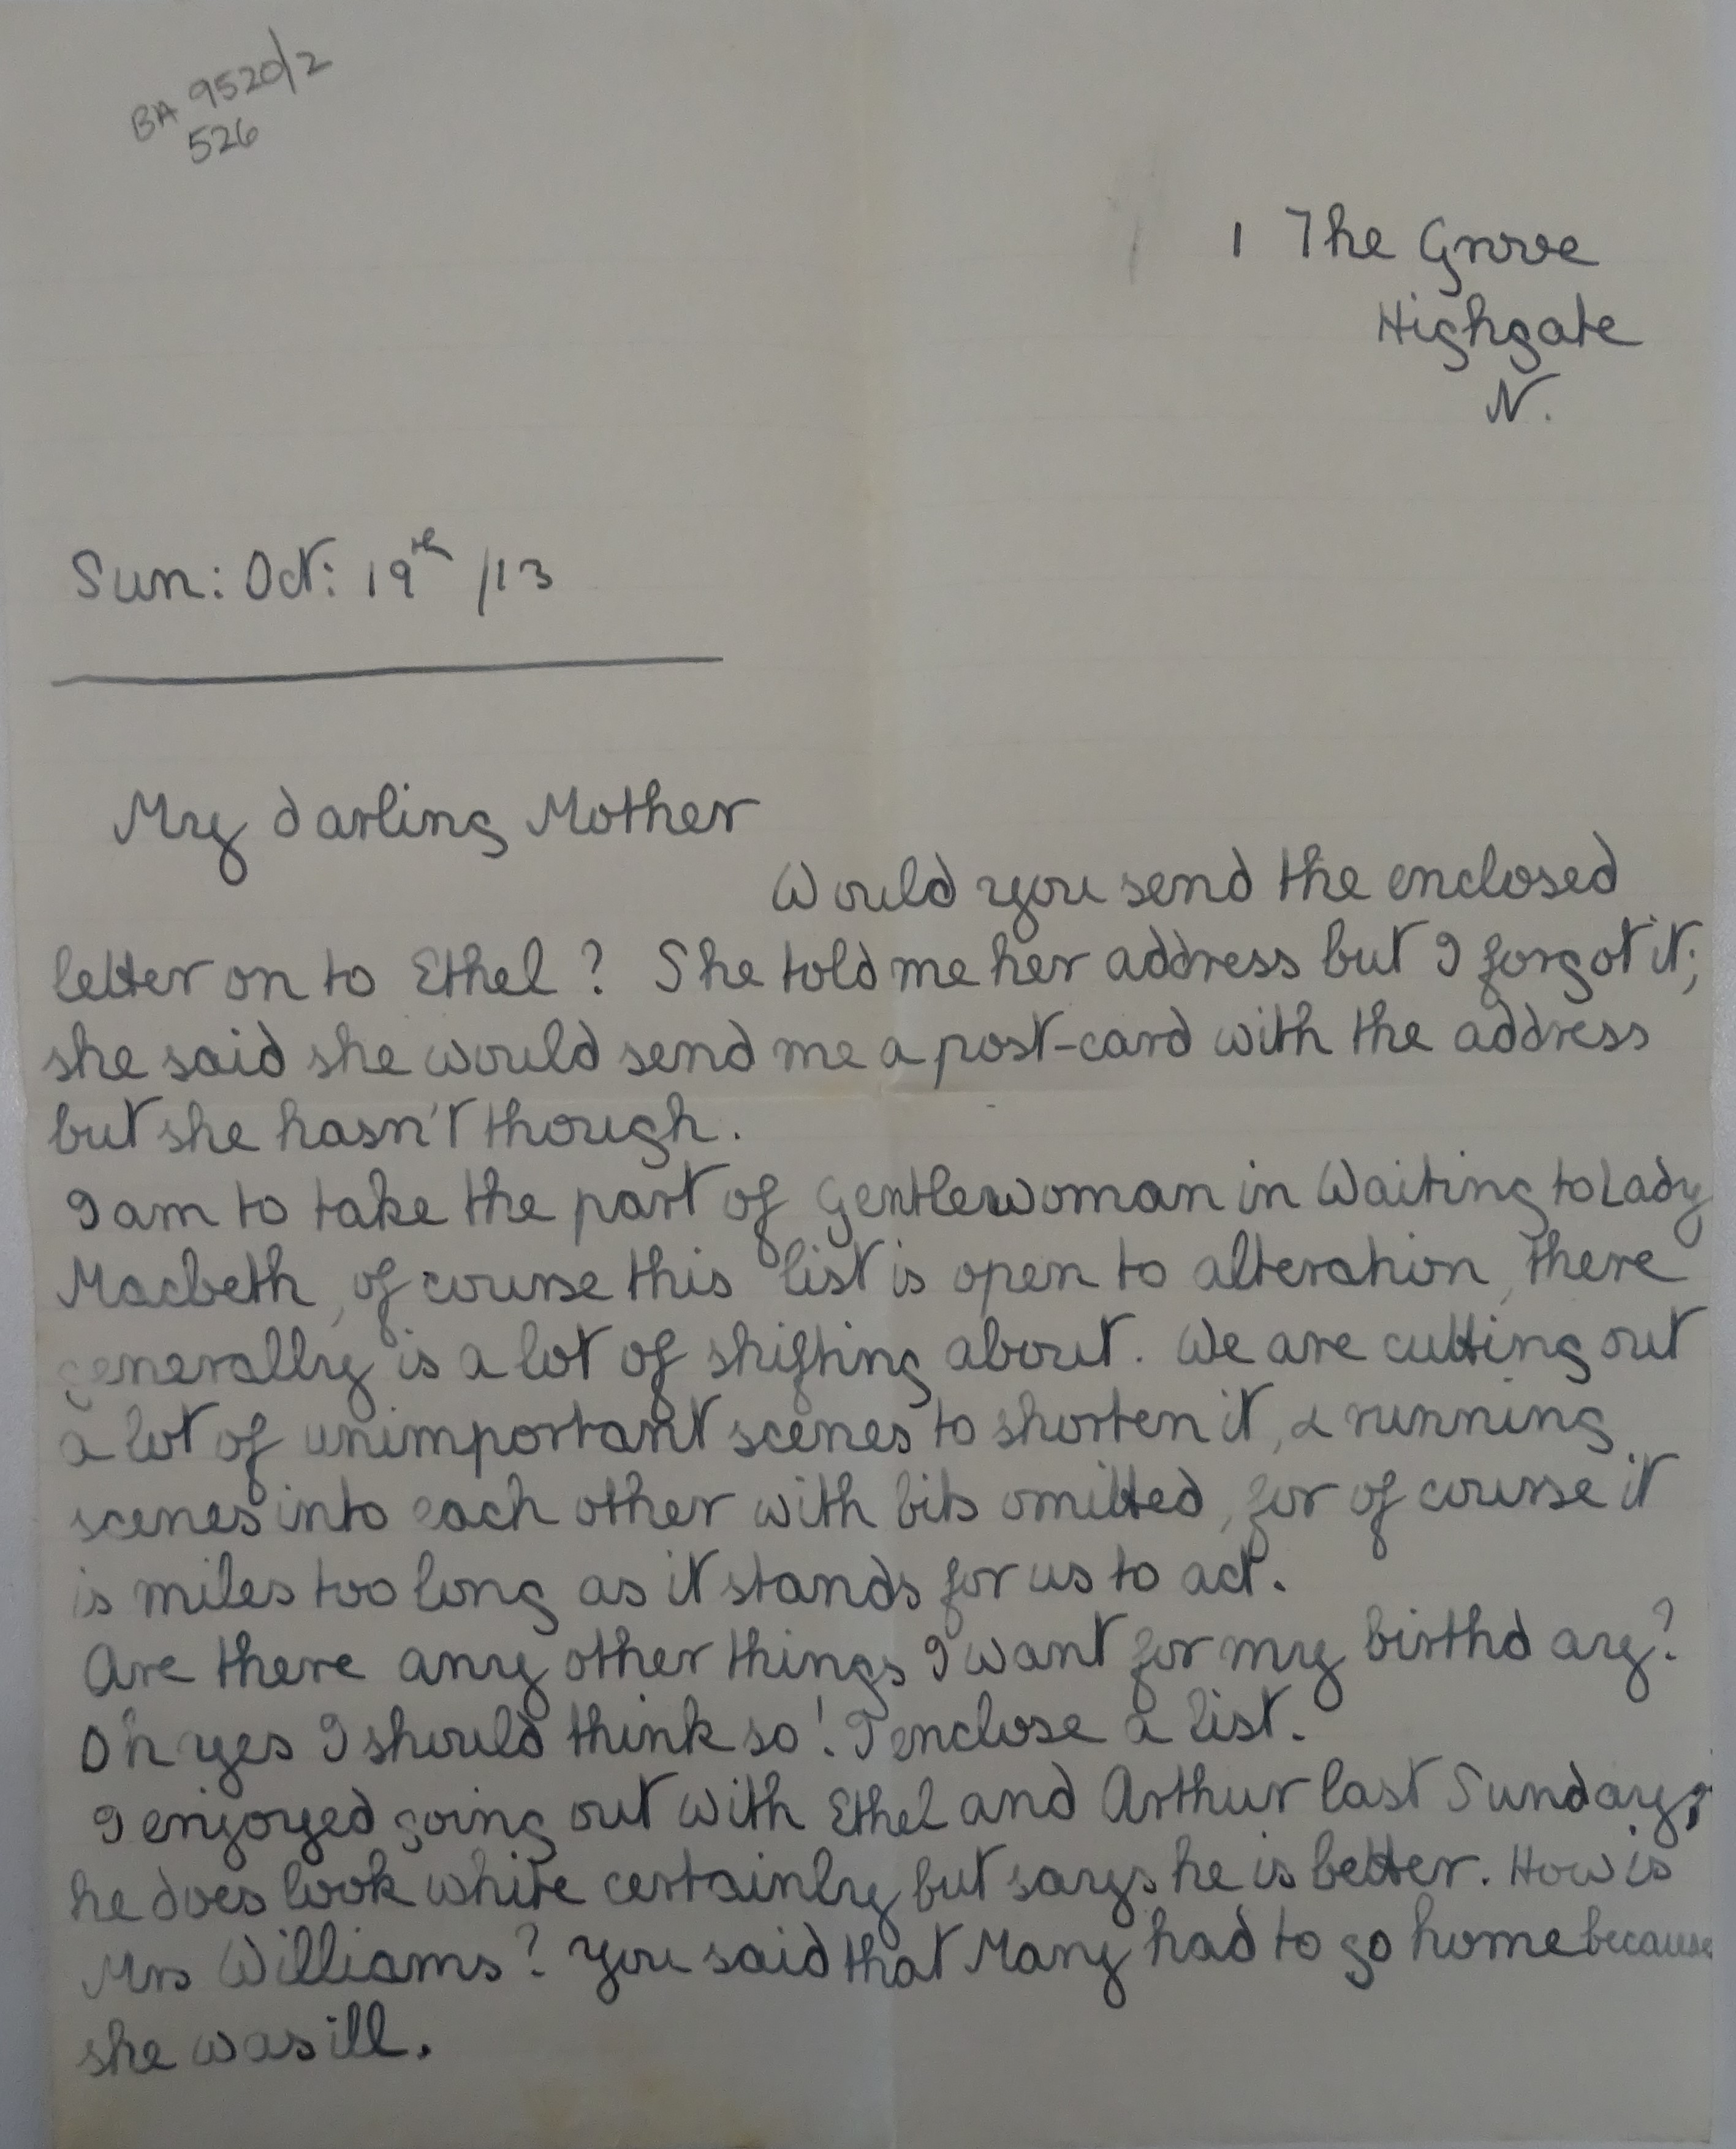 BA 9520/2
526
1 The Grove
Highgate
N.
Sun: Oct: 19th /13
My darling Mother
Would you send the enclosed
letter on to Ethel? She told me her address but I forgot it;
she said she would send me a post-card with the address
but she hasn't though.
I am to take the part of Gentlewoman in Waiting to Lady
Macbeth, of course this list is open to alteration, there
generally is a lot of shifting about. We are cutting out
a lot of unimportant scenes to shorten it, & running
scenes into each other with bits omitted, for of course it
is miles too long as it stands for us to act.
Are there any other things I want for my birthday?
Oh yes I should think so! I enclose a list.
I enjoyed going out with Ethel and Arthur last Sunday;
he does look white certainly but says he is better. How is
Mrs Williams? You said that Mary had to go home because
she was ill.